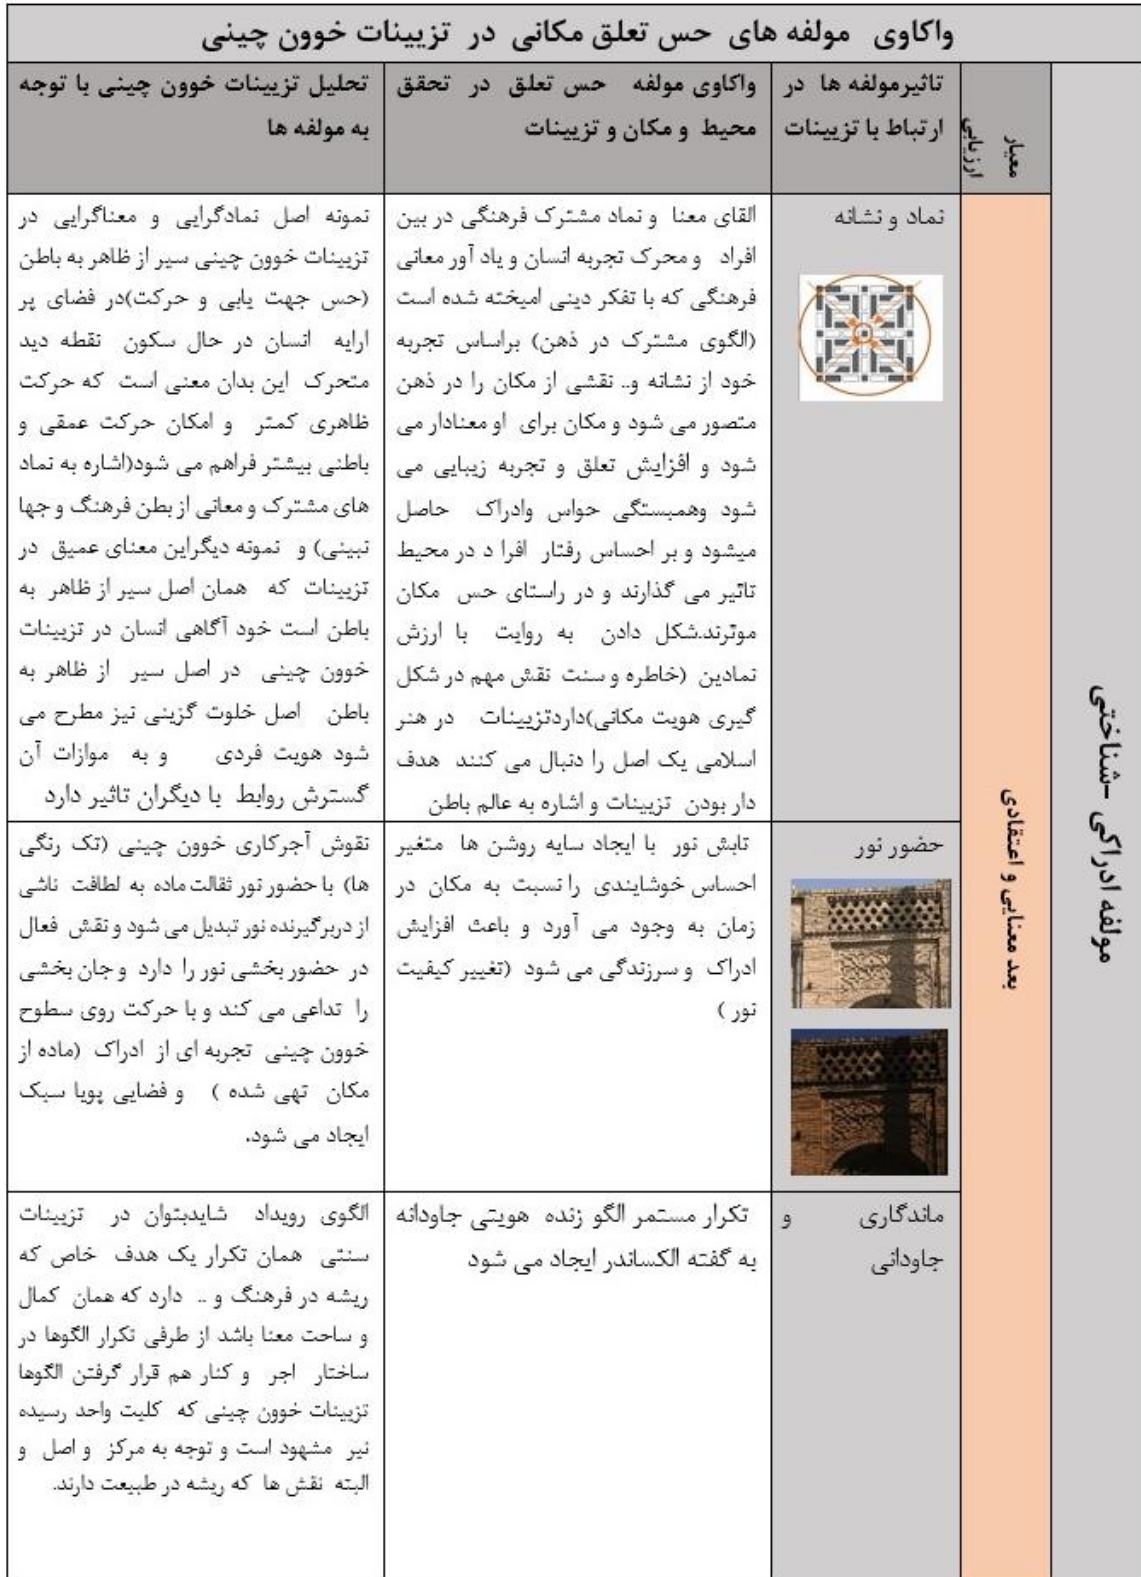 واکاوی مولفه های حس تعلق مکانی در تزیینات خوون چینی
معیار
ارزیابی
تاثیرمولفه ها در
ارتباط با تزیینات
واکاوی مولفه حس تعلق در تحقق
محیط و مکان و تزیینات
تحلیل تزیینات خوون چینی با توجه
به مولفه ها
مولفه ادراکی -شناختی
بعد معنایی و اعتقادی
نماد و نشانه
القای معنا و نماد مشترک فرهنگی در بین
افراد و محرک تجربه انسان و یاد آور معانی
فرهنگی که با تفکر دینی امیخته شده است
(الگوی مشترک در ذهن) براساس تجربه
خود از نشانه و.. نقشی از مکان را در ذهن
متصور می شود و مکان برای او معنادار می
شود و افزایش تعلق و تجربه زیبایی می
شود وهمبستگی حواس وادراک حاصل
میشود و بر احساس رفتار افرا د در محیط
تاثیر می گذارند و در راستای حس مکان
موثرند.شکل دادن به روایت با ارزش
نمادین (خاطره و سنت نقش مهم در شکل
گیری هویت مکانی)داردتزیینات در هنر
اسلامی یک اصل را دنبال می کنند هدف
دار بودن تزیینات و اشاره به عالم باطن
نمونه اصل نمادگرایی و معناگرایی در
تزیینات خوون چینی سیر از ظاهر به باطن
(حس جهت یابی و حرکت)در فضای پر
ارایه انسان در حال سکون نقطه دید
متحرک این بدان معنی است که حرکت
ظاهری کمتر و امکان حرکت عمقی و
باطنی بیشتر فراهم می شود(اشاره به نماد
های مشترک و معانی از بطن فرهنگ و جها
نبینی) و نمونه دیگراین معنای عمیق در
تزیینات که همان اصل سیر از ظاهر به
باطن است خود آگاهی انسان در تزیینات
خوون چینی در اصل سیر از ظاهر به
باطن اصل خلوت گزینی نیز مطرح می
شود هویت فردی و به موازات آن
گسترش روابط با دیگران تاثیر دارد
حضور نور
تابش نور با ایجاد سایه روشن ها متغیر
احساس خوشایندی را نسبت به مکان در
زمان به وجود می آورد و باعث افزایش
ادراک و سرزندگی می شود (تغییر کیفیت
نور )
نقوش آجرکاری خوون چینی (تک رنگی
ها) با حضور نور ثقالت ماده به لطافت ناشی
از دربرگیرنده نور تبدیل می شود و نقش فعال
در حضور بخشی نور را دارد و جان بخشی
را تداعی می کند و با حرکت روی سطوح
خوون چینی تجربه ای از ادراک (ماده از
مکان تهی شده ) و فضایی پویا سبک
ایجاد می شود.
ماندگاری و
جاودانی
تکرار مستمر الگو زنده هویتی جاودانه
به گفته الکساندر ایجاد می شود
الگوی رویداد شایدبتوان در تزیینات
سنتی همان تکرار یک هدف خاص که
ریشه در فرهنگ و .. دارد که همان کمال
و ساحت معنا باشد از طرفی تکرار الگوها در
ساختار اجر و کنار هم قرار گرفتن الگوها
تزیینات خوون چینی که کلیت واحد رسیده
نیر مشهود است و توجه به مرکز و اصل و
البته نقش ها که ریشه در طبیعت دارند.